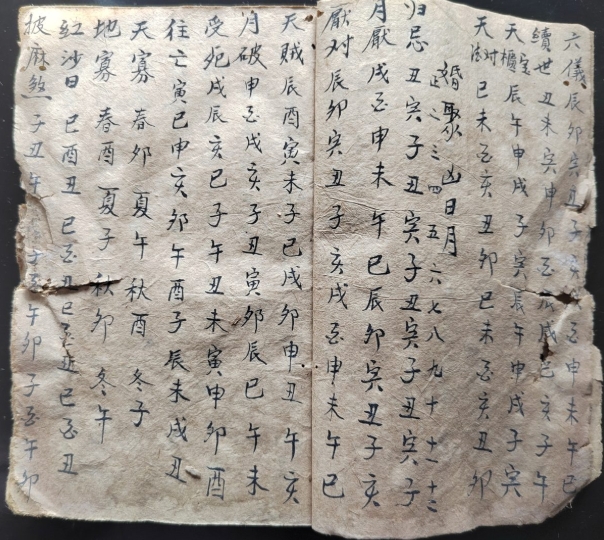 六儀 辰卯寅丑子亥酉申未午巳
續世 丑未寅申卯酉辰戌巳亥子午
天櫃 辰午申戌子寅辰午申戌子寅
天对 巳未酉亥丑卯巳未酉亥丑卯
婚娶凶日月
正二三四五六七八九十十一十二
归忌 丑寅子丑寅子丑寅子丑寅子
月厭 戌酉申未午巳辰卯寅丑子亥
厭对 辰卯寅丑子亥戌酉申未午巳
天賊 辰酉寅未子巳戌卯申丑午亥
月破 申酉戌亥子丑寅卯辰巳午未
受死 戌辰亥巳子午丑未寅申卯酉
往亡 寅巳申亥卯午酉子辰未戌丑
天寡 春卯 夏午 秋酉 冬子
地寡 春酉 夏子 秋卯 冬午
红沙日 巳酉丑 巳酉丑巳酉丑巳酉丑
披麻煞 子丑午 午卯子酉午卯